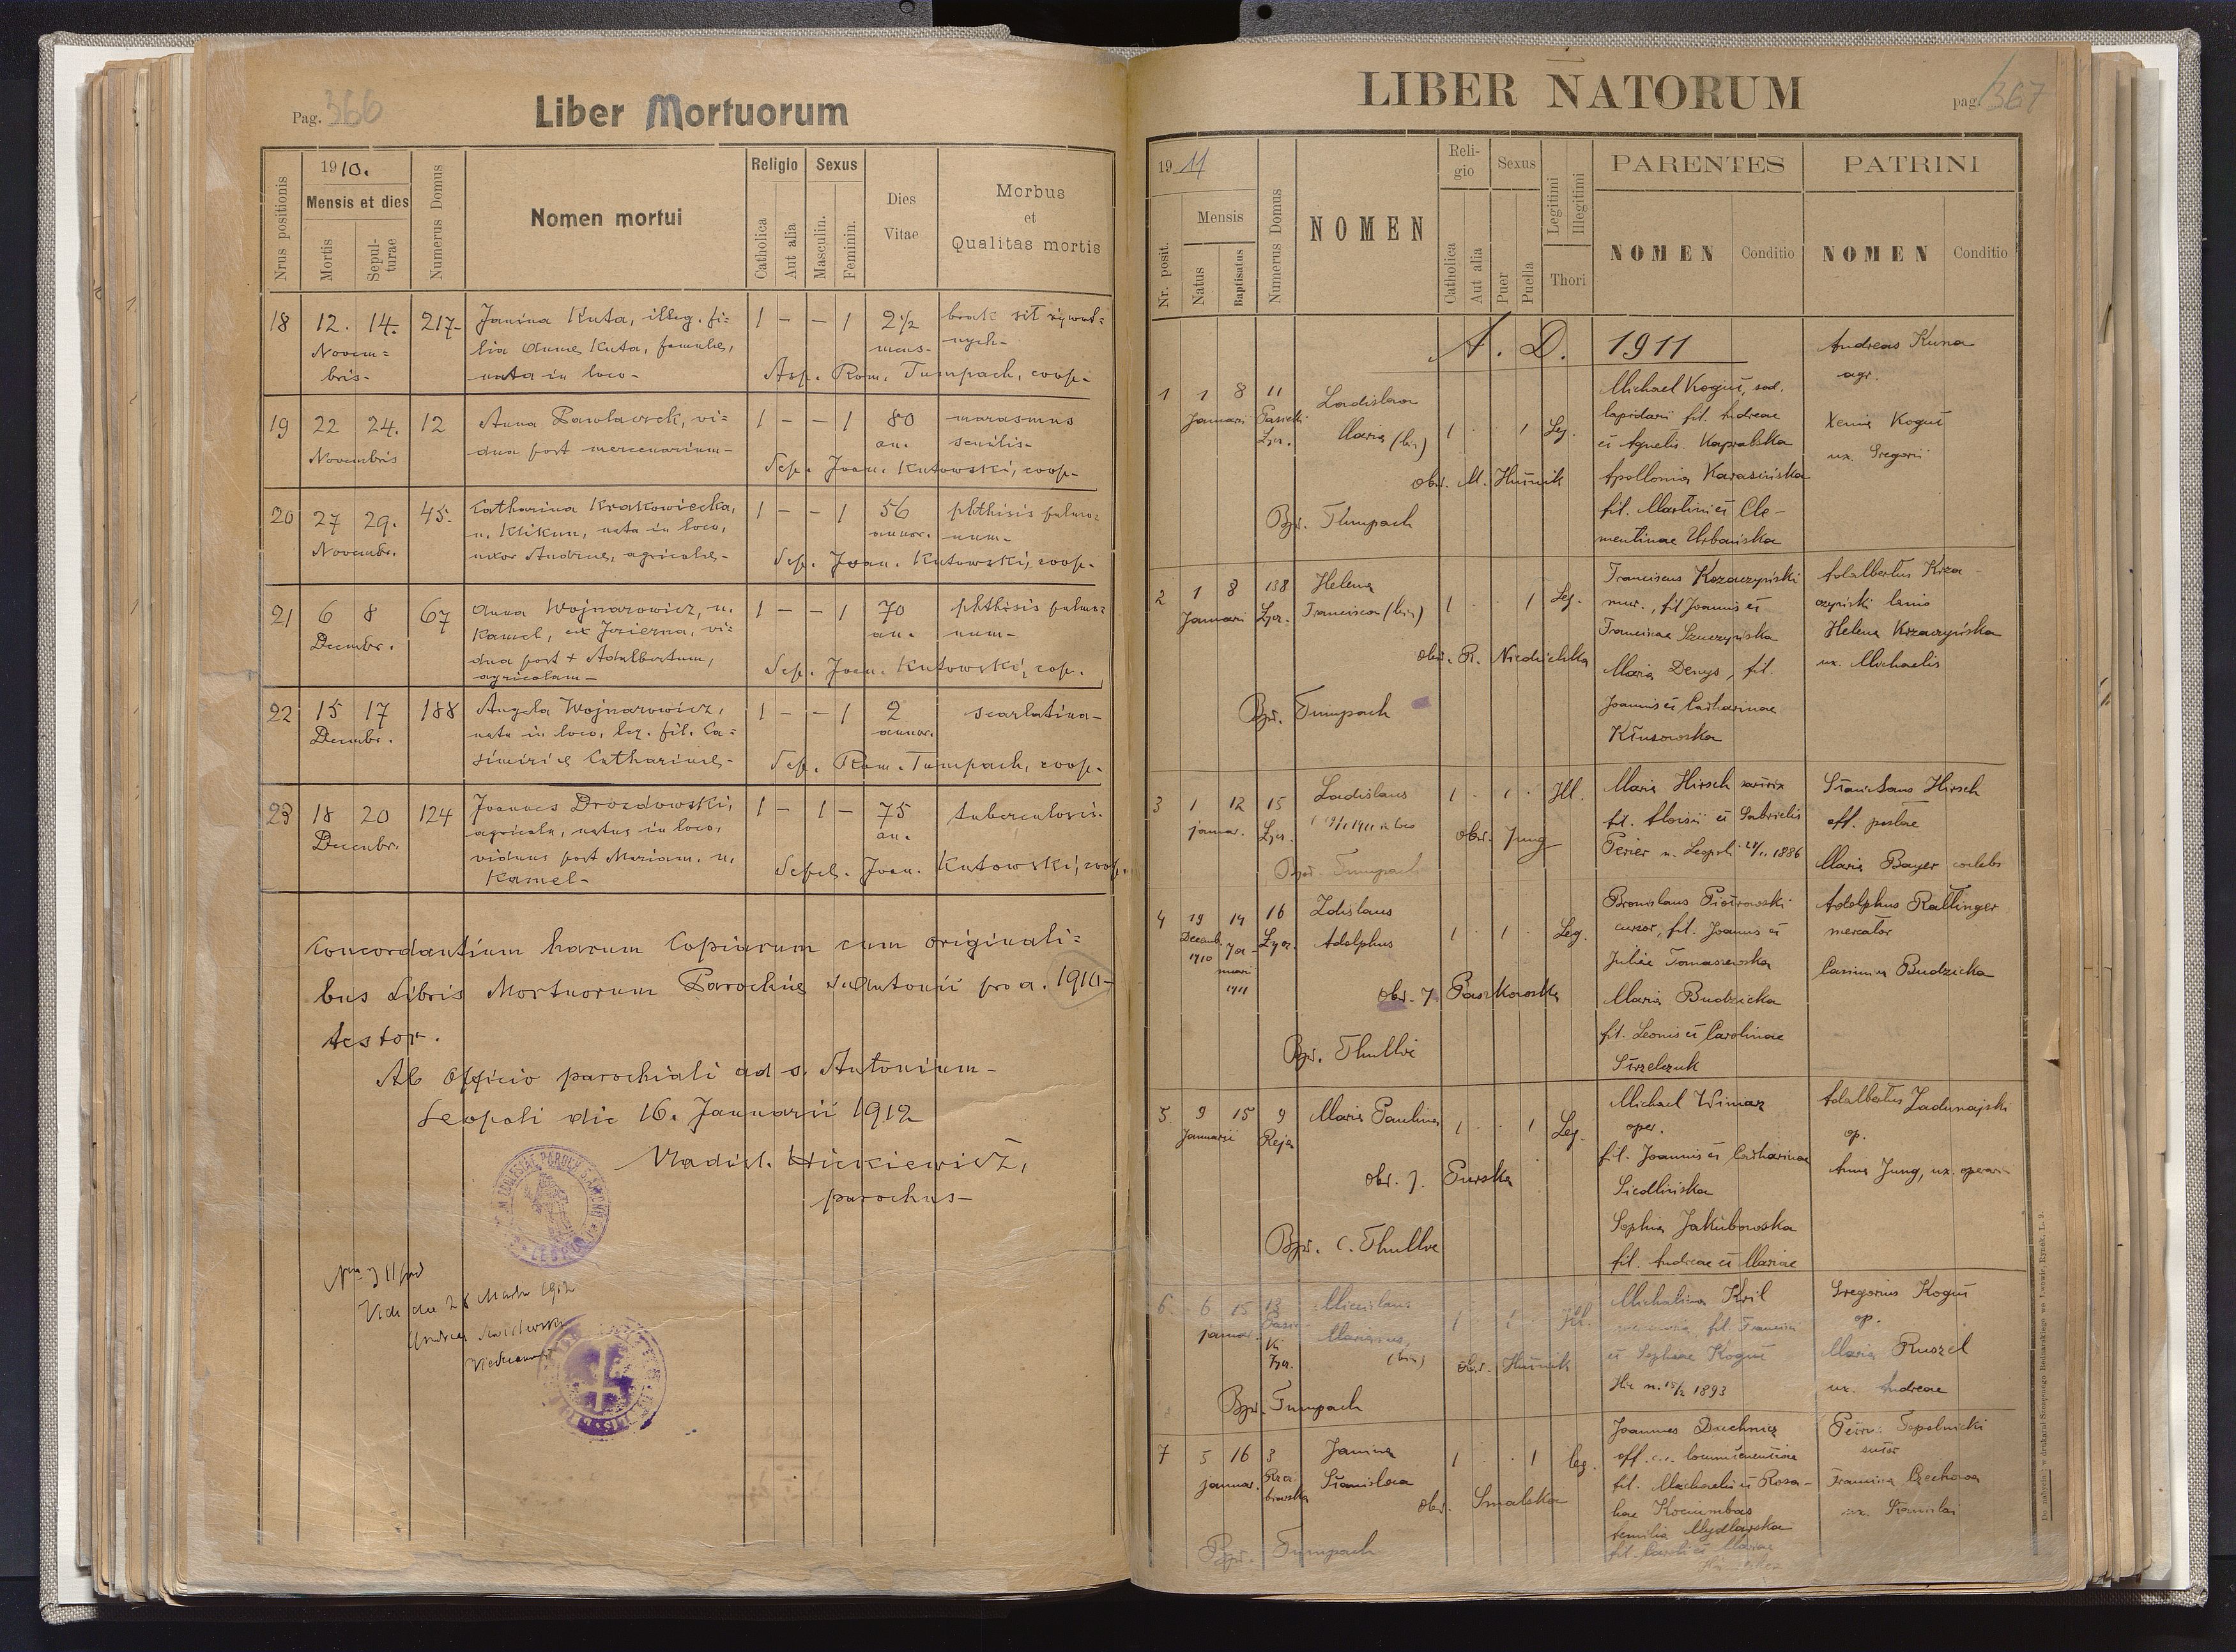 Pag. 366
Liber Mortuorum
Nrus positionis
1910.
Mensis et dies
Mortis
Sepulturae
Numerus Domus
Nomen mortui
Religio
Catholica
Aut alia
Sexus
Masculin.
Feminin.
Dies
Vitae
Morbus
et
Qualitas mortis
18 12. 14. 217- Janina Kuta, illeg. fi= 1 - - 1 2 1/2 brak sił żywot=
Novem= lia Annae Kuta, famulae, mens- nych-
bris- nata in loco- Rom. Tumpach, coop-
19 22 24. 12 Anna Pawlaczek, vi= 1 - - 1 80 marasmus
Novembris dua post mercenarium- an. senilis-
Sep. Joan. Kutowski, coop-
20 27 29. 45. Catharina Krakowiecka, 1 - - 1 56 phthisis pulmo=
Novembr. n. Klikun, nata in loco, annor. num-
uxor Andreae, agricolae- Sep. Joan. Kutowski, coop-
21 6 8 67 Anna Wojnarowicz, n. 1 - - 1 70 phthisis pulmo=
Decembr. Kamel, ex Jezierna, vi= an. num-
dua post + Adalbertum, Sep. Joan. Kutowski, cop.
agricolam-
22 15 17 188 Angela Wojnarowicz, 1 - - 1 2 scarlatina-
Decembr. nata in loco, leg. fil. Ca= annor.
simiri et Catharinae- Sep. Rom. Tumpach, coop-
23 18 20 124 Joannes Drozdowski, 1 - 1 - 75 tuberculosis.
Decembr. agricola, natus in loco, an.
viduus post Mariam. n. Sepel. Joan. Kutowski, coop.
Kamel-
Concordantiam harum Copiarum cum originali=
bus Libris Mortuorum Parochiae s. Antonii pro a. 1910-
testor.
Ab Officio parochiali ad s. Antonium-
Leopoli die 16. Januarii 1912
Vladisl. Hickiewicz,
parochus-
LIBER NATORUM
pag. 367
1911
Nr. posit.
Mensis
Natus
Baptisatus
Numerus Domus
NOMEN
Religio
Catholica
Aut alia
Sexus
Puer
Puella
Legitimi
Illegitimi
Thori
PARENTES
NOMEN
Conditio
PATRINI
NOMEN
Conditio
A. D. 1911 Andreas Kuna
agr.
1 1 8 11 Ladislava Michael Kogut, sod.
Januarii Pasieki Maria (bin) 1 1 Leg. lapidarii fil. Andreae Xenia Kogut
Łycz. et Agnetis Kapralska ux. Gregorii
obst. M. Hutnik Apollonia Karasińska
Bapt. Tumpach fil. Martini et Cle-
mentinae Urbańska
2 1 8 138 Helena Franciscus Kozaczyński Adalbertus Krza-
Januarii Łycz. Francisca (bin) 1 1 Leg. mur., fil Joannis et czyński lanio
Franciscae Szuczyńska Helena Krzaczyńska
obst. R. Niedzielska Maria Denys, fil. ux. Michaelis
Bapt. Tumpach Joannis et Catharinae
Kłusowska
3 1 12 15 Ladislaus 1 1 Ill. Maria Hirsch sartrix Stanislaus Hirsch
januar. Łycz. obst. Jung fil. Aloisii et Gabrielis off. postae
Bapt. Tumpach Perier n. Leopoli 1886 Maria Bayer coelebs
4 19 14 16 Zdislaus Bronislaus Piotrowski Adolphus Rattinger
Decemb. Ja- Łycz. Adolphus 1 1 Leg. cursor, fil. Joannis et mercator
1910 nuarii Juliae Tomaszewska Casimira Budzicka
1911 obst. J. Paszkowska Maria Budzicka
fil. Leonis et Carolinae
Bapt. Thullie Strzelczuk
5. 9 15 9 Maria Paulina 1 1 Leg. Michael Winiarz Adalbertus Zadunajski
Januarii Reja oper. op.
fil. Joannis et Catharinae Anna Jung, ux. operarii
obst. J. Purska Siedlińska
Sophia Jakubowska
Bapt. C. Thullie fil. Andreae et Mariae
6. 6 15 13 Miecislaus 1 1 Ill. Michalina Kril Gregorius Kogut
januar. Pasie- Marianus fil. Francisci op.
ki (bin) obst. Hutnik et Sophiae Kogut Maria Ruszel
Łycz. Hic n. 1893 ux. Andreae
Bapt. Tumpach
7 5 16 3 Janina 1 1 leg. Joannes Duchnicz Petrus Topolnicki
januar. Stanislava off. sutor
fil. Michaelis et Rosa- Francisca Czechowa
obst. Smalska liae Kociumbas ux. Stanislai
Bapt. Tumpach Aemilia Mydlarska
fil. Caroli et Mariae